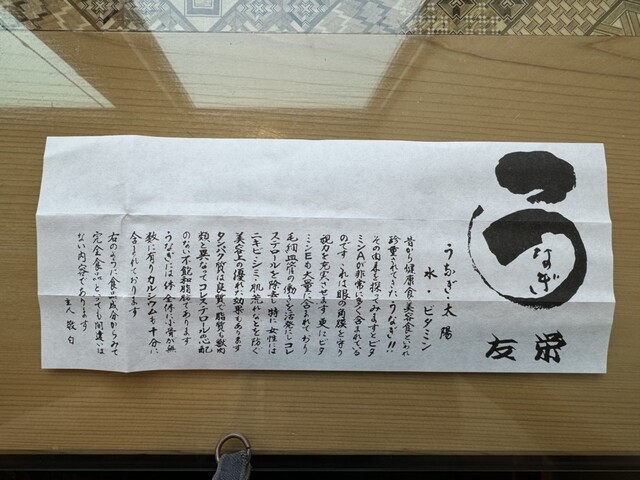 うなぎ
栄友
うなぎ・太陽
水・ビタミン
昔から健康食、美容食といわれ
珍重されてきた、うなぎ!!
その内奉を探ってみますとビタ
ミンAが非常に多く含まれている
のです。これは眼の角膜を守り
視力を充尽させます 更にビタ
ミンEも大量に含まれており
毛細血管の働きを活発にしコレ
ステロールを除去 特に女性には
ニキビ、シミ、肌荒れなどを防ぐ
美容上の優れた効果もあります
タンパク質は良質で脂質も獣肉
類と異なってコレステロールの心配
のない不飽和脂肪であります
うなぎには体全体に小骨が無
数に有りカルシウムも十分に
含まれております
右のように食品成分からみて
完全食品といっても間違いは
ない内容であります
主人 敬白